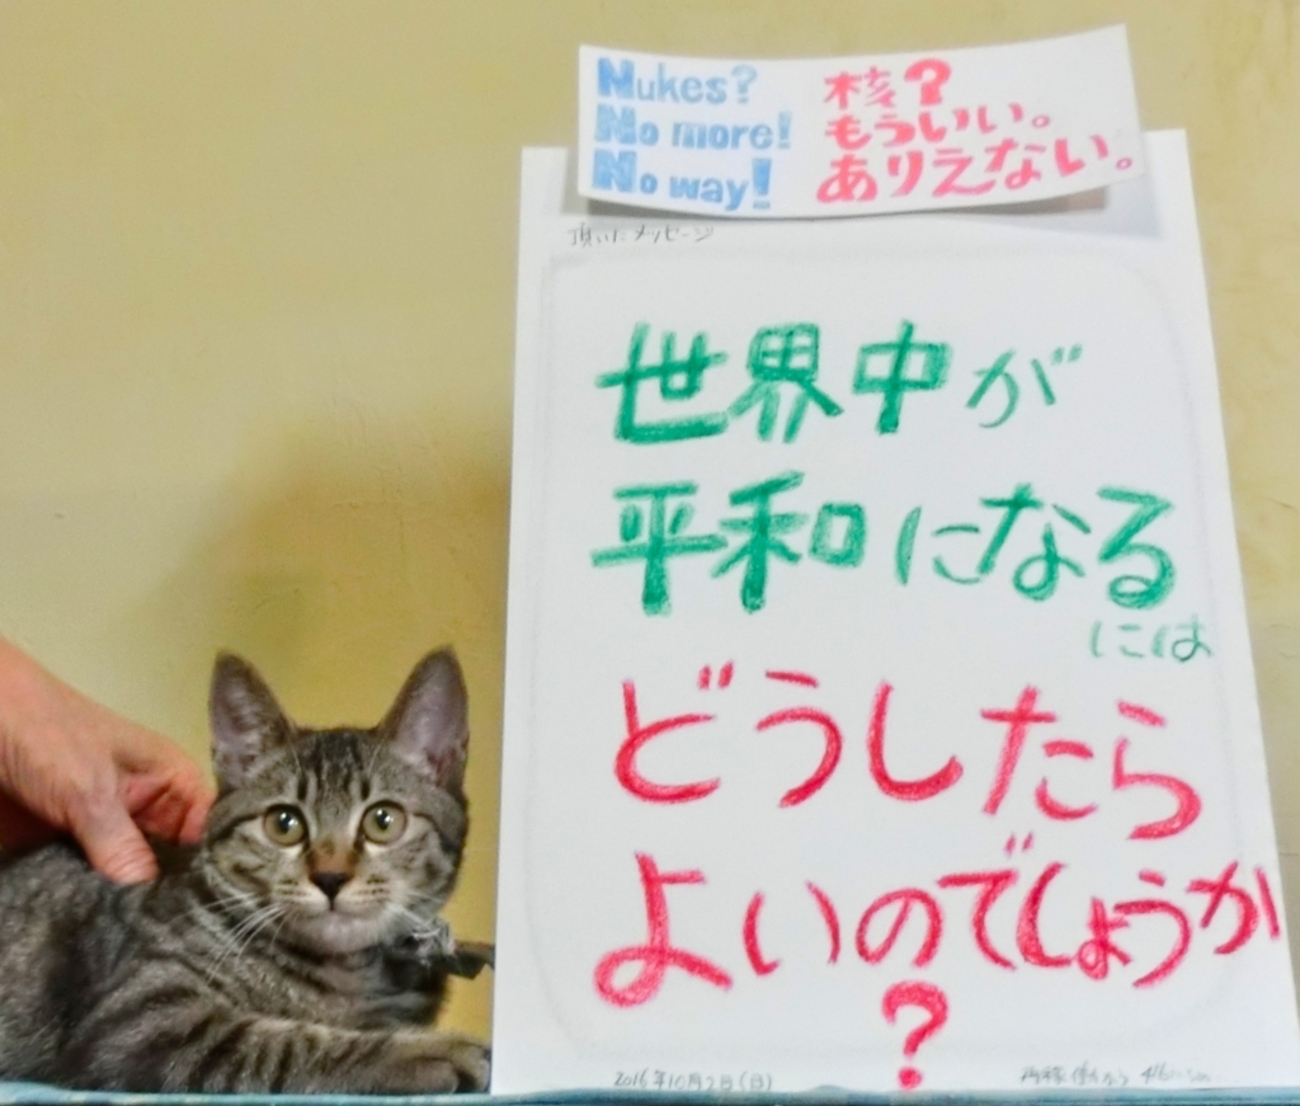 Nukes?
No more!
No way!
核?
もういい。
ありえない。
頂いたメッセージ
世界中が
平和になる
には
どうしたら
よいのでしょうか
?
2016年10月2日(日)